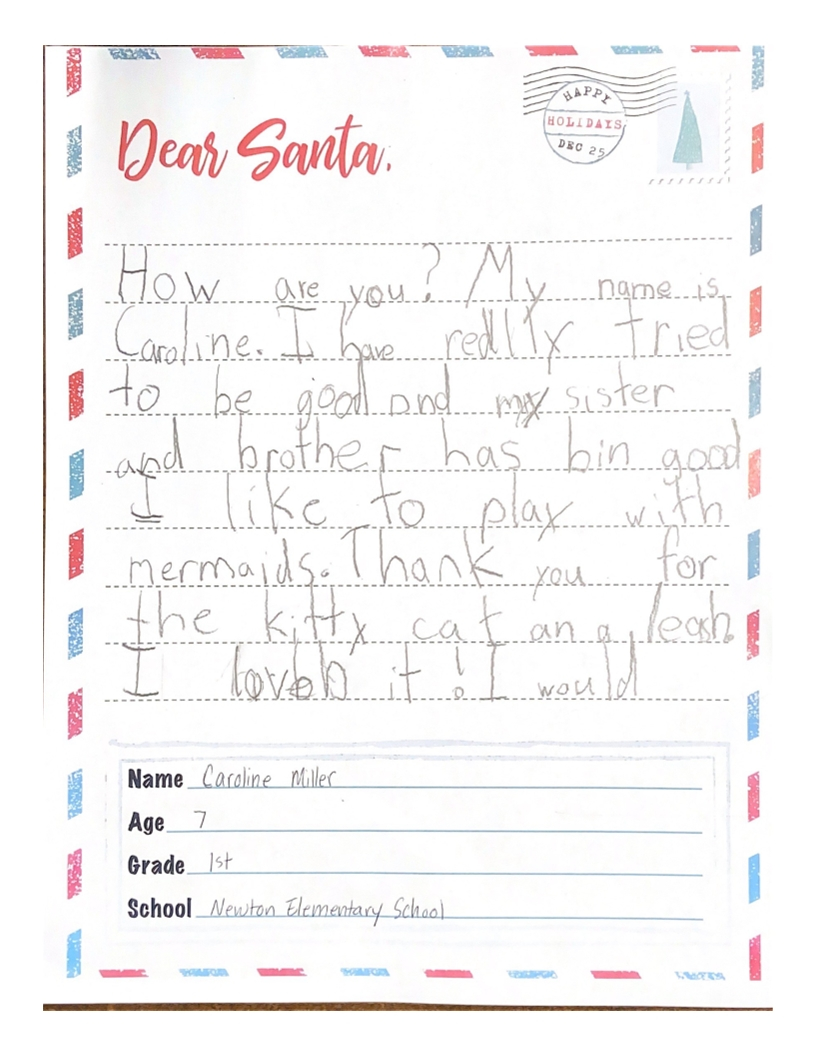 HAPPY
HOLIDAYS
DEC 25
Dear Santa,
How are you? My name is
Caroline. I have redlly tried
to be good and my sister
and brother has bin good
I like to play with
mermaids. Thank you for
the kitty cat an a leash.
I loveb it! I would
Name Caroline Miller
Age 7
Grade 1st
School Newton Elementary School